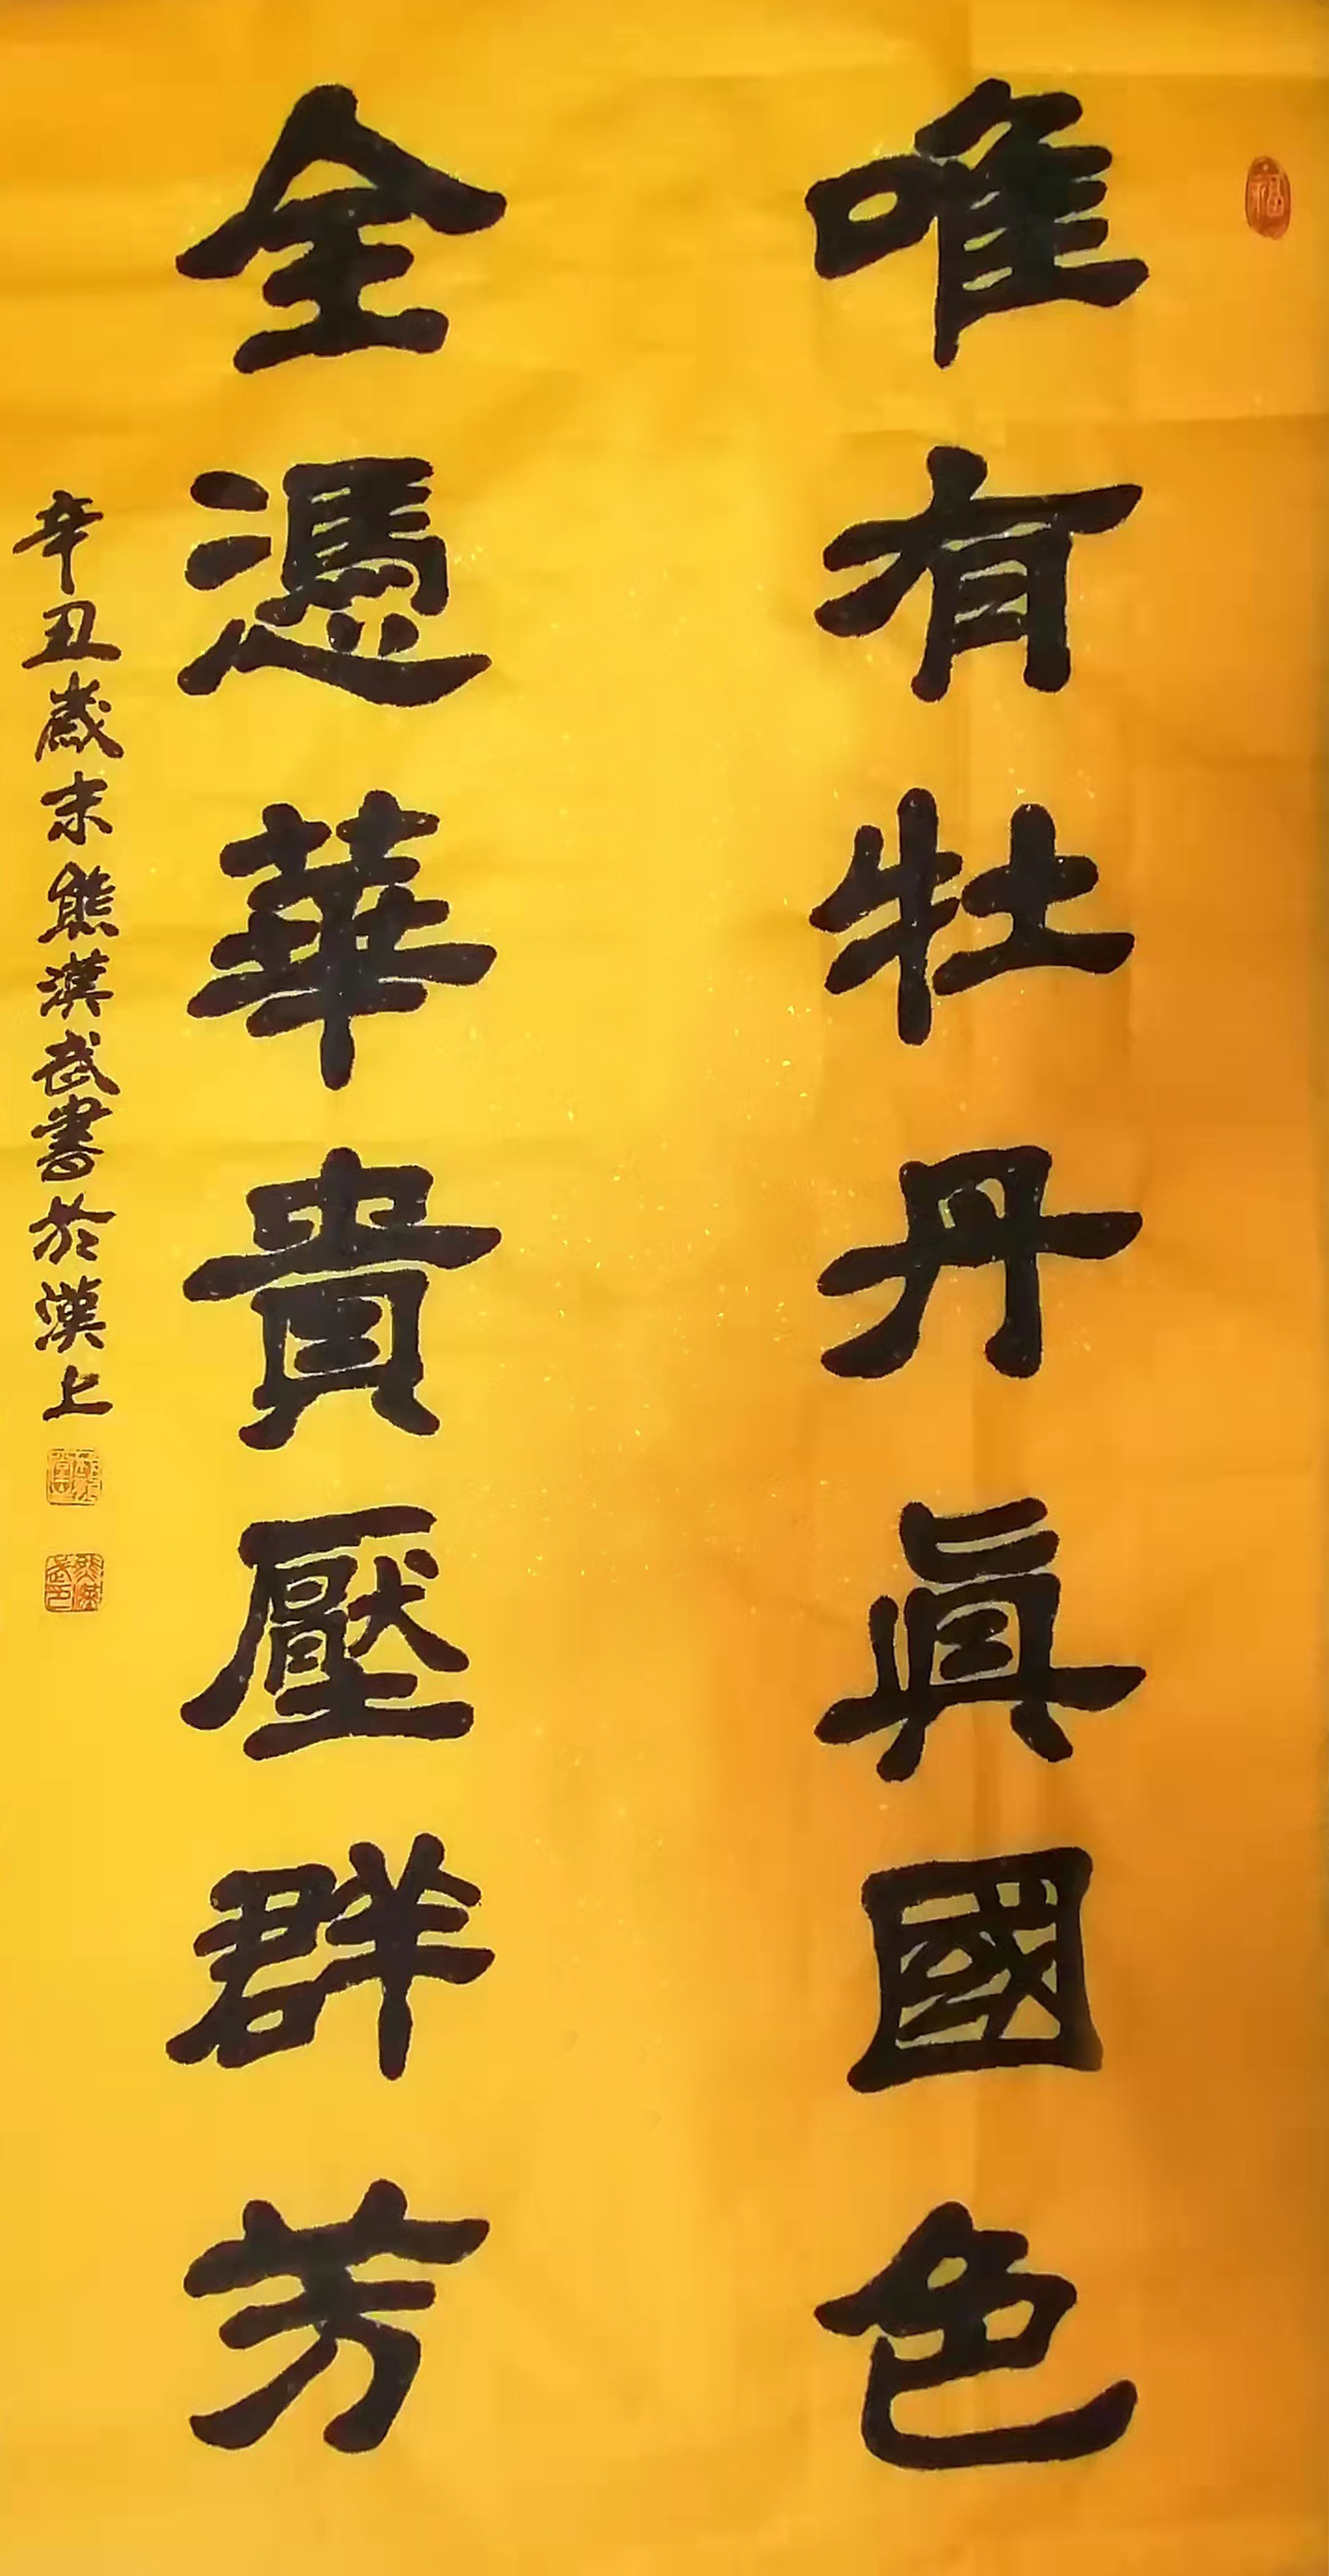 福
唯有牡丹眞國色
全憑華貴壓群芳
辛丑歲末熊漢武書於漢上
熊漢武印